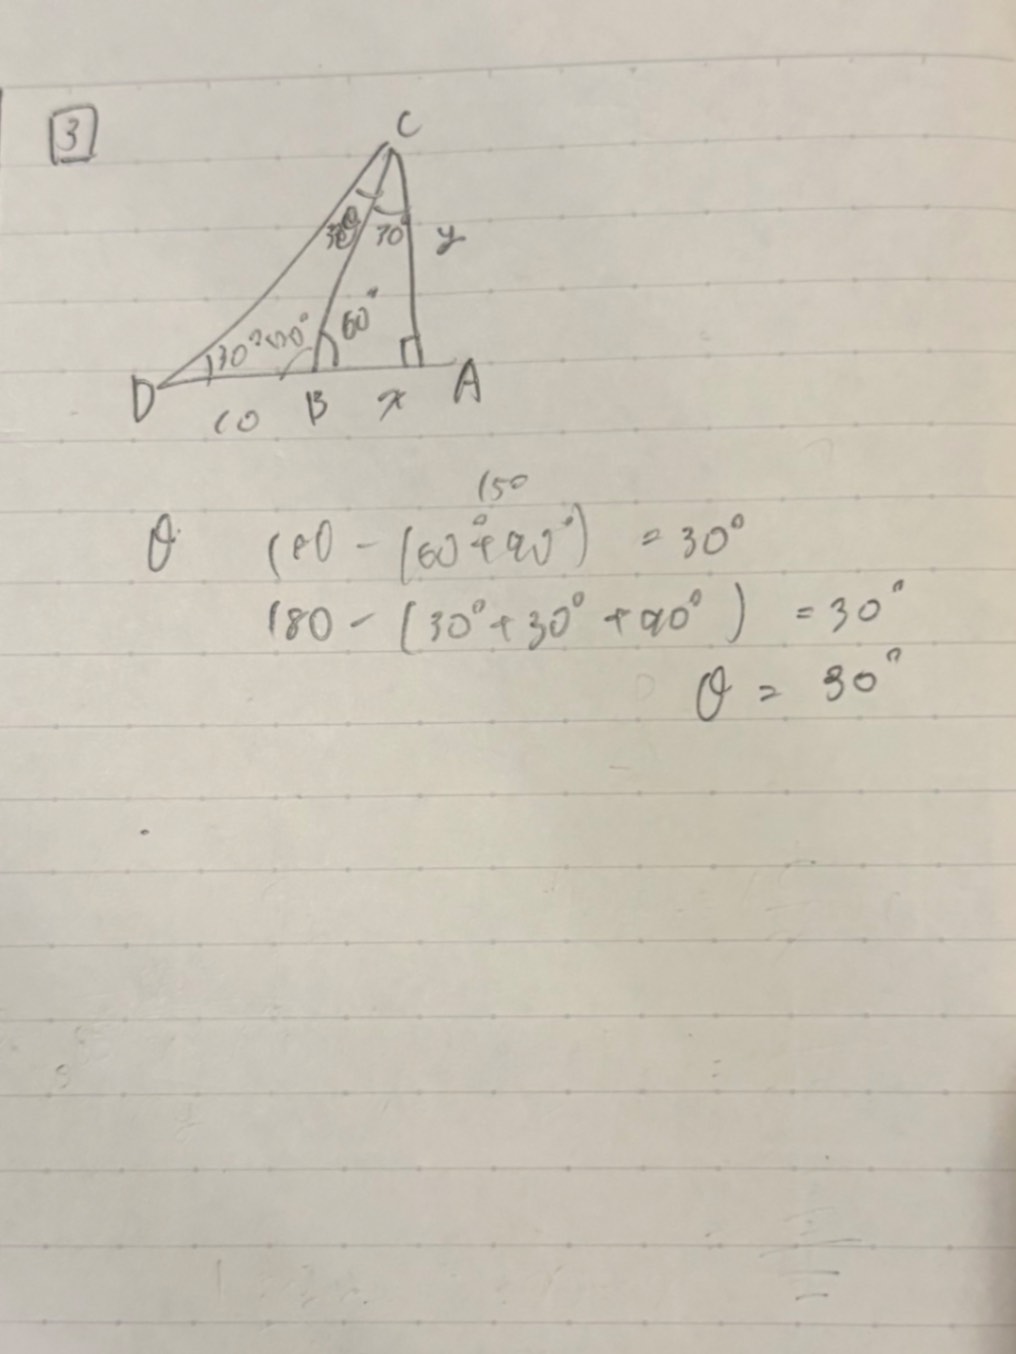 3
C
30° y
60°
30°
D 10 B x A
150
θ 180 - (60°+90°) = 30°
180 - (30°+30°+90°) = 30°
θ = 30°